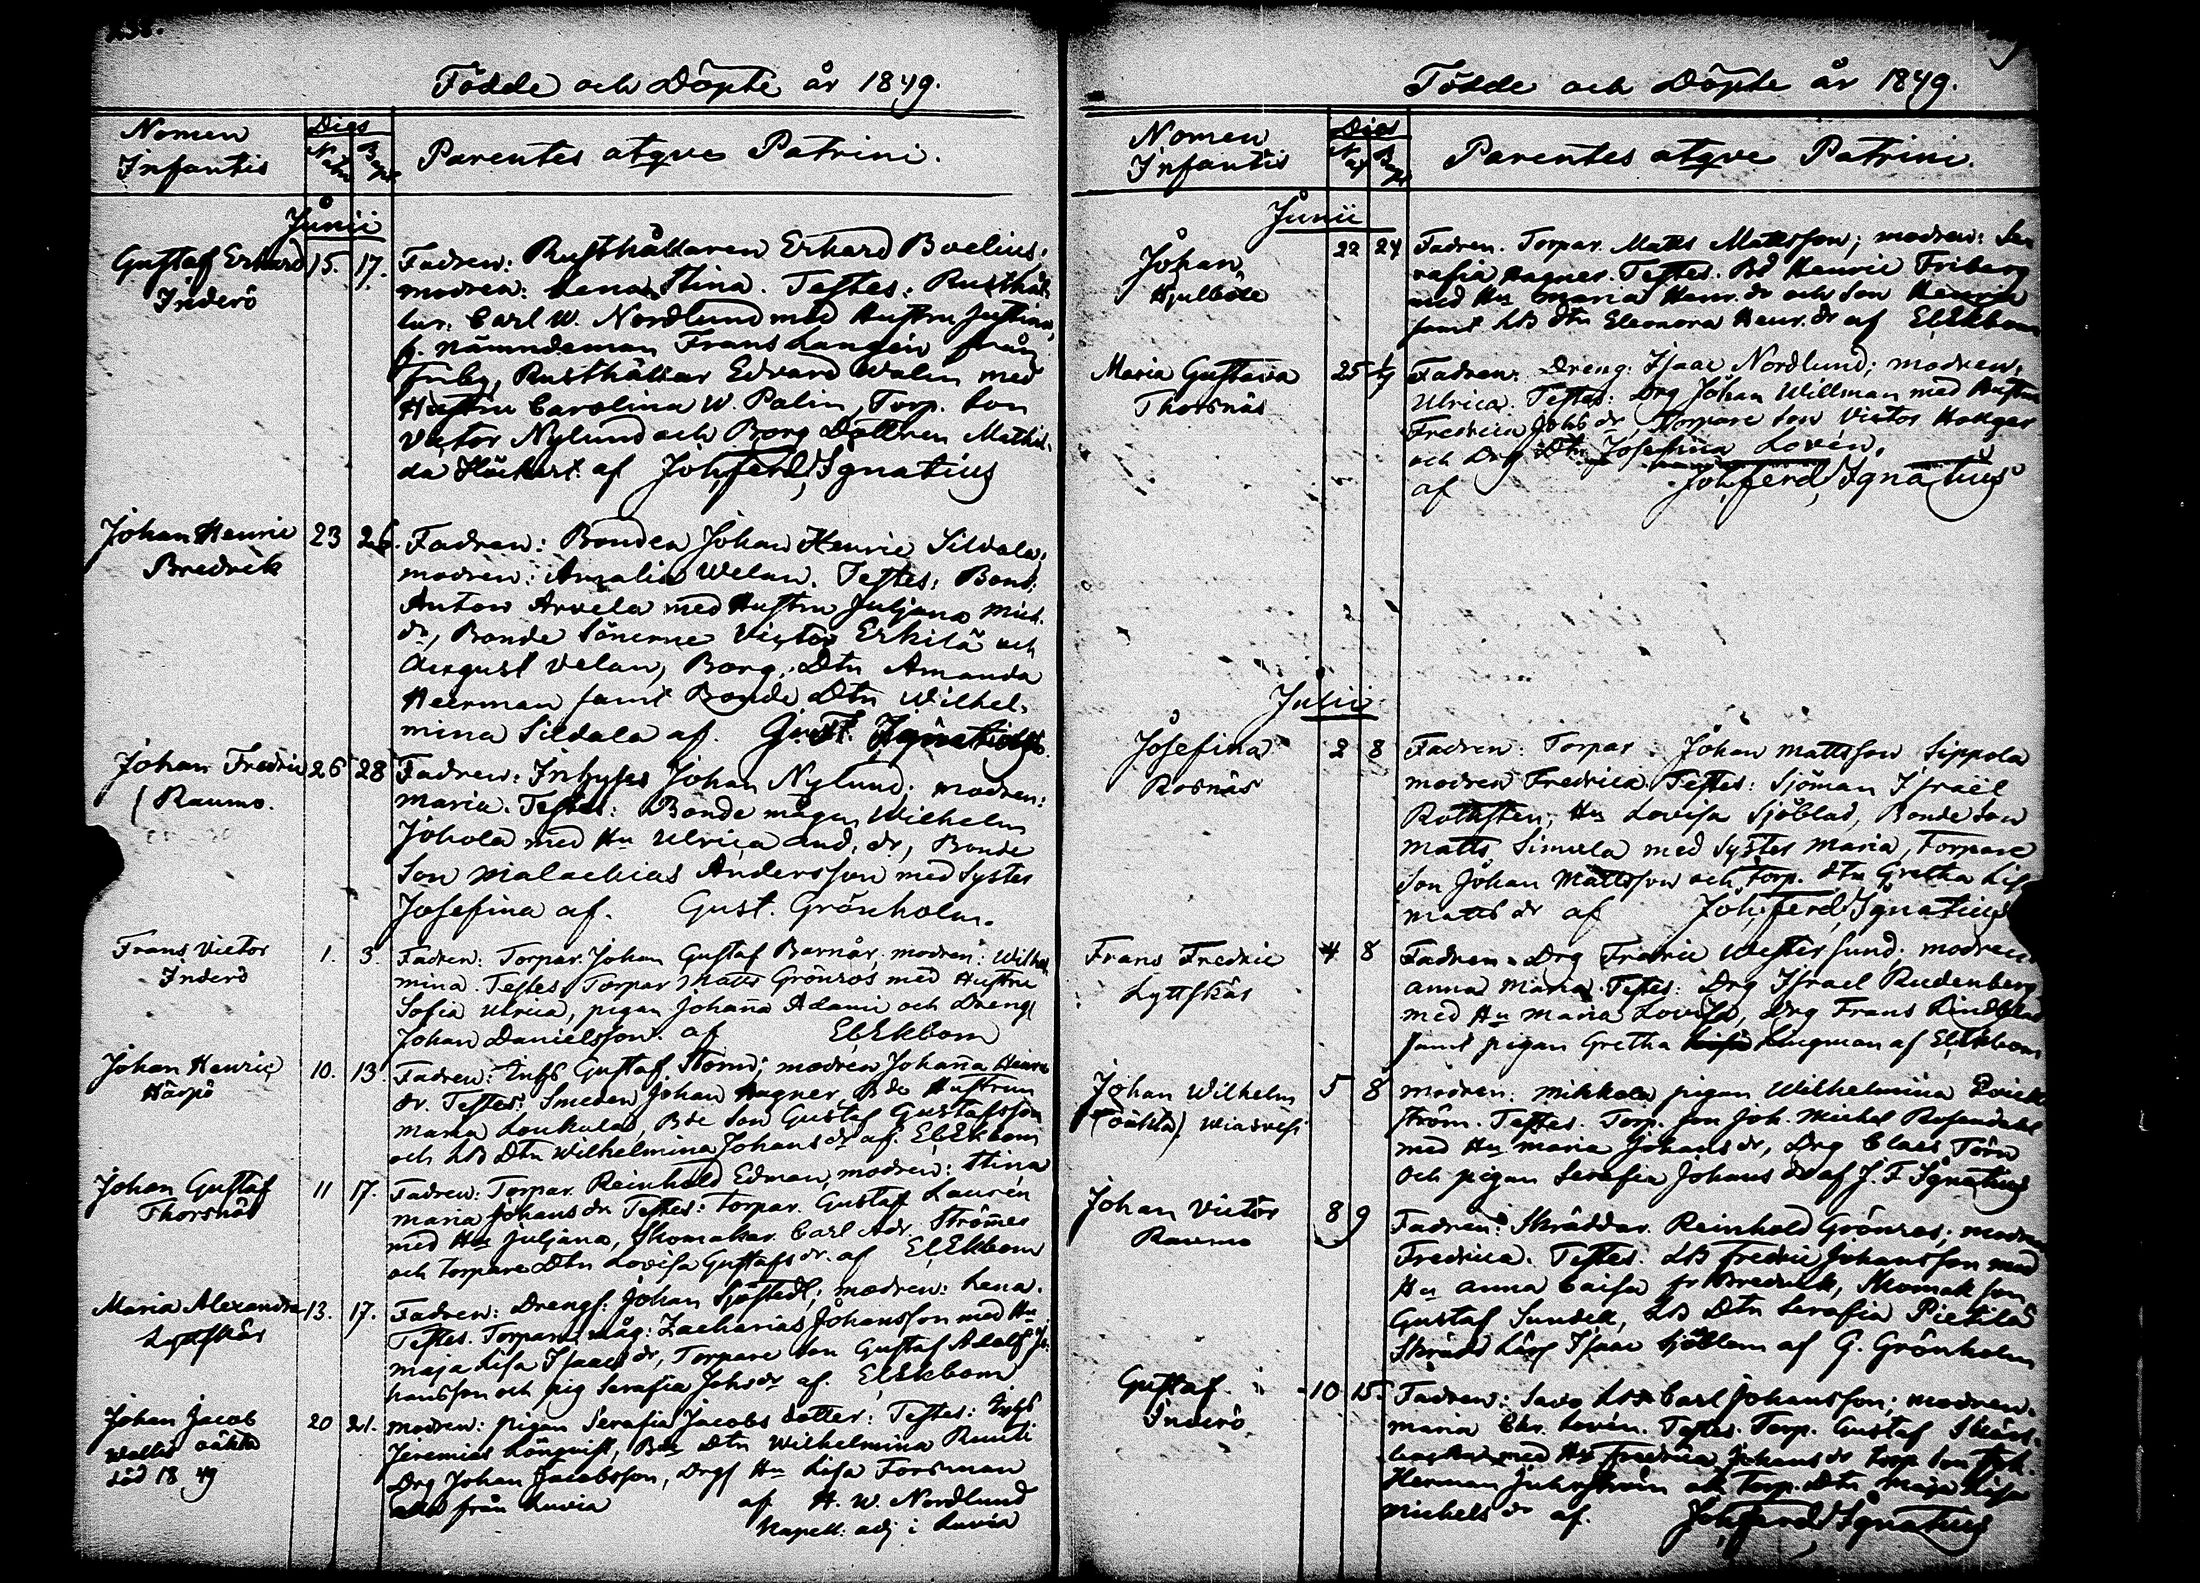 Födde och Döpte år 1849.
Nomen
Infantis
Dies
Natu
Bapt
Parentes atqve Patrini.
Junii
Gustaf Erhard
Inderö
15. 17.
Fadren: Rusthållaren Erhard Boelius;
modren: Lena Stina. Testes: Rusthål-
lar. Carl W. Nordlund med Hustru Justina,
f. nämndeman Frans Langén från
Inby, Rusthållar Edvard Walin med
Hustru Carolina W. Palin, Torp. Son
Victor Nylund och Borg Dottren Mathil-
da Höckert af Joh. Ferd. Ignatius
Johan Henric
Bredvik
23 26.
Fadren: Bonden Johan Henric Sildala;
modren: Amalia Welan. Testes: Bond.
Anton Arvela med Hustru Juljana Mich.
dr, Bonde Sönerne Victor Erkilä och
August Velan, Borg. Dtn Amanda
Heerman samt Bonde Dtn Wilhel-
mina Sildala af. G. F. Ignatius
Johan Fredric
Raumo.
26 28
Fadren: Inhyses Johan Nylund; modren:
Maria. Testes: Bonde mågen Wilhelm
Johola med Hu Ulrica And. dr, Bonde
Son Malachias Andersson med Syster
Josefina af. Gust. Grönholm.
Frans Victor
Inderö
1. 3.
Fadren: Torpar Johan Gustaf Barnår, modren: Wilhel
mina. Testes Torpar Matts Grönros med Hustru
Sofia Ulrica, pigan Johanna Adami och Dreng
Johan Danielsson. af El Ekbom
Johan Henric
Härpö
10. 13.
Fadren: Inhs Gustaf Storm; modren Johanna Henr
dr. Testes: Smeden Johan Hagner, Bde Hustrun
Maria Loukula, Bde Son Gustaf Gustafsson
och LB Dtn Wilhelmina Johans dr af. El Ekbom
Johan Gustaf
Thorsnäs
11 17.
Fadren: Torpar. Reinhold Edman, modren: Stina
Maria Johans dr Testes: Torpar. Gustaf Laurén
med Hu Juljana, Skomakar. Carl Adr. Strömer
och Torpare Dtn Lovisa Gustafs dr. af El Ekbom
Maria Alexandra
Lyttskär
13. 17.
Fadren: Drengs: Johan Sjöstedt; modren: Lena.
Testes. Torpare måg: Zacharias Johansson med Hu
Maja Lisa Isaacs dr, Torpare Son Gustaf Adolf Jo-
hansson och pig Serafia Johs dr af. El Ekbom
Johan Jacob
oäkta
död 18 49
20 21.
modren: pigan Serafia Jacobs dotter: Testes: Inhs
Jeremias Lönqvist, Bde Dtn Wilhelmina
Drg Johan Jacobsson, Drgs Hu Lisa Forsman
alla från Luvia af H. W. Nordlund
Kapell: adj i Luvia
Födde och Döpte år 1849.
Nomen
Infantis
Dies
Parentes atqve Patrini.
Junii
Johan
Hjulböle
22 24
Fadren. Torpar. Matts Mattsson; modren: Se-
rafia Hagner. Testes. Bd Henric Friberg
med Hu Maria Henr. dr och Son Henric
samt LB Dtn Eleonora Henr. dr af El Ekbom
Maria Gustava
Thorsnäs
25 1/7
Fadren: Dreng: Isaac Nordlund; modren:
Ulrica. Testes: Drg Johan Willman med Hustru
Fredrica Johs dr, Torpare Son Victor
och Drg Dtn Josefina Lovén,
af Joh. Ferd. Ignatius
Julii
Josefina
Rosnäs
2 8
Fadren: Torpar Johan Mattsson Sippola
modren Fredrica. Testes: Sjöman Israël
Rothsten, Hu Lovisa Sjöblad, Bonde Son
Matts Simula med Syster Maria, Torpare
Son Johan Mattsson och Torp. dtn Gretha Lisa
Matts dr af Joh. Ferd. Ignatius
Frans Fredric
Lyttskär
4 8
Fadren: Drg Fredric Westersund; modren
Anna Maria. Testes: Drg Israel Rudenberg
med Hu Maria Lovisa, Drg Frans Lindblad
samt pigan Gretha Lugman af El Ekbom
Johan Wilhelm
(oäkta)
5 8
modren: Mikkola pigan Wilhelmina Qvick
ström. Testes. Torp. Son Joh. Michel Rosendahl
med Hu Maria Johans dr, Drg Claes Törn
och pigan Serafia Johans dr af J. F. Ignatius
Johan Victor
Raumo
8 9
Fadren: Skräddar. Reinhold Grönros; modren
Fredrica. Testes. LB Fredric Johansson med
Hu Anna Caisa fr Bredvik, Skomak Son
Gustaf Sundell, LB Dtn Serafia Pietilä
Skrädd Lärl Isaac Sjöblom af G. Grönholm
Gustaf.
Inderö
10 15.
Fadren: Savo LB Carl Johansson; modren.
Maria Chr. Lovén. Testes. Torp. Gustaf
med Hu Fredrica Johans dr Torp Son Joh.
Herman Juhrström och Torp. Dtn Maja Lisa
Michels dr af. Joh. Ferd. Ignatius